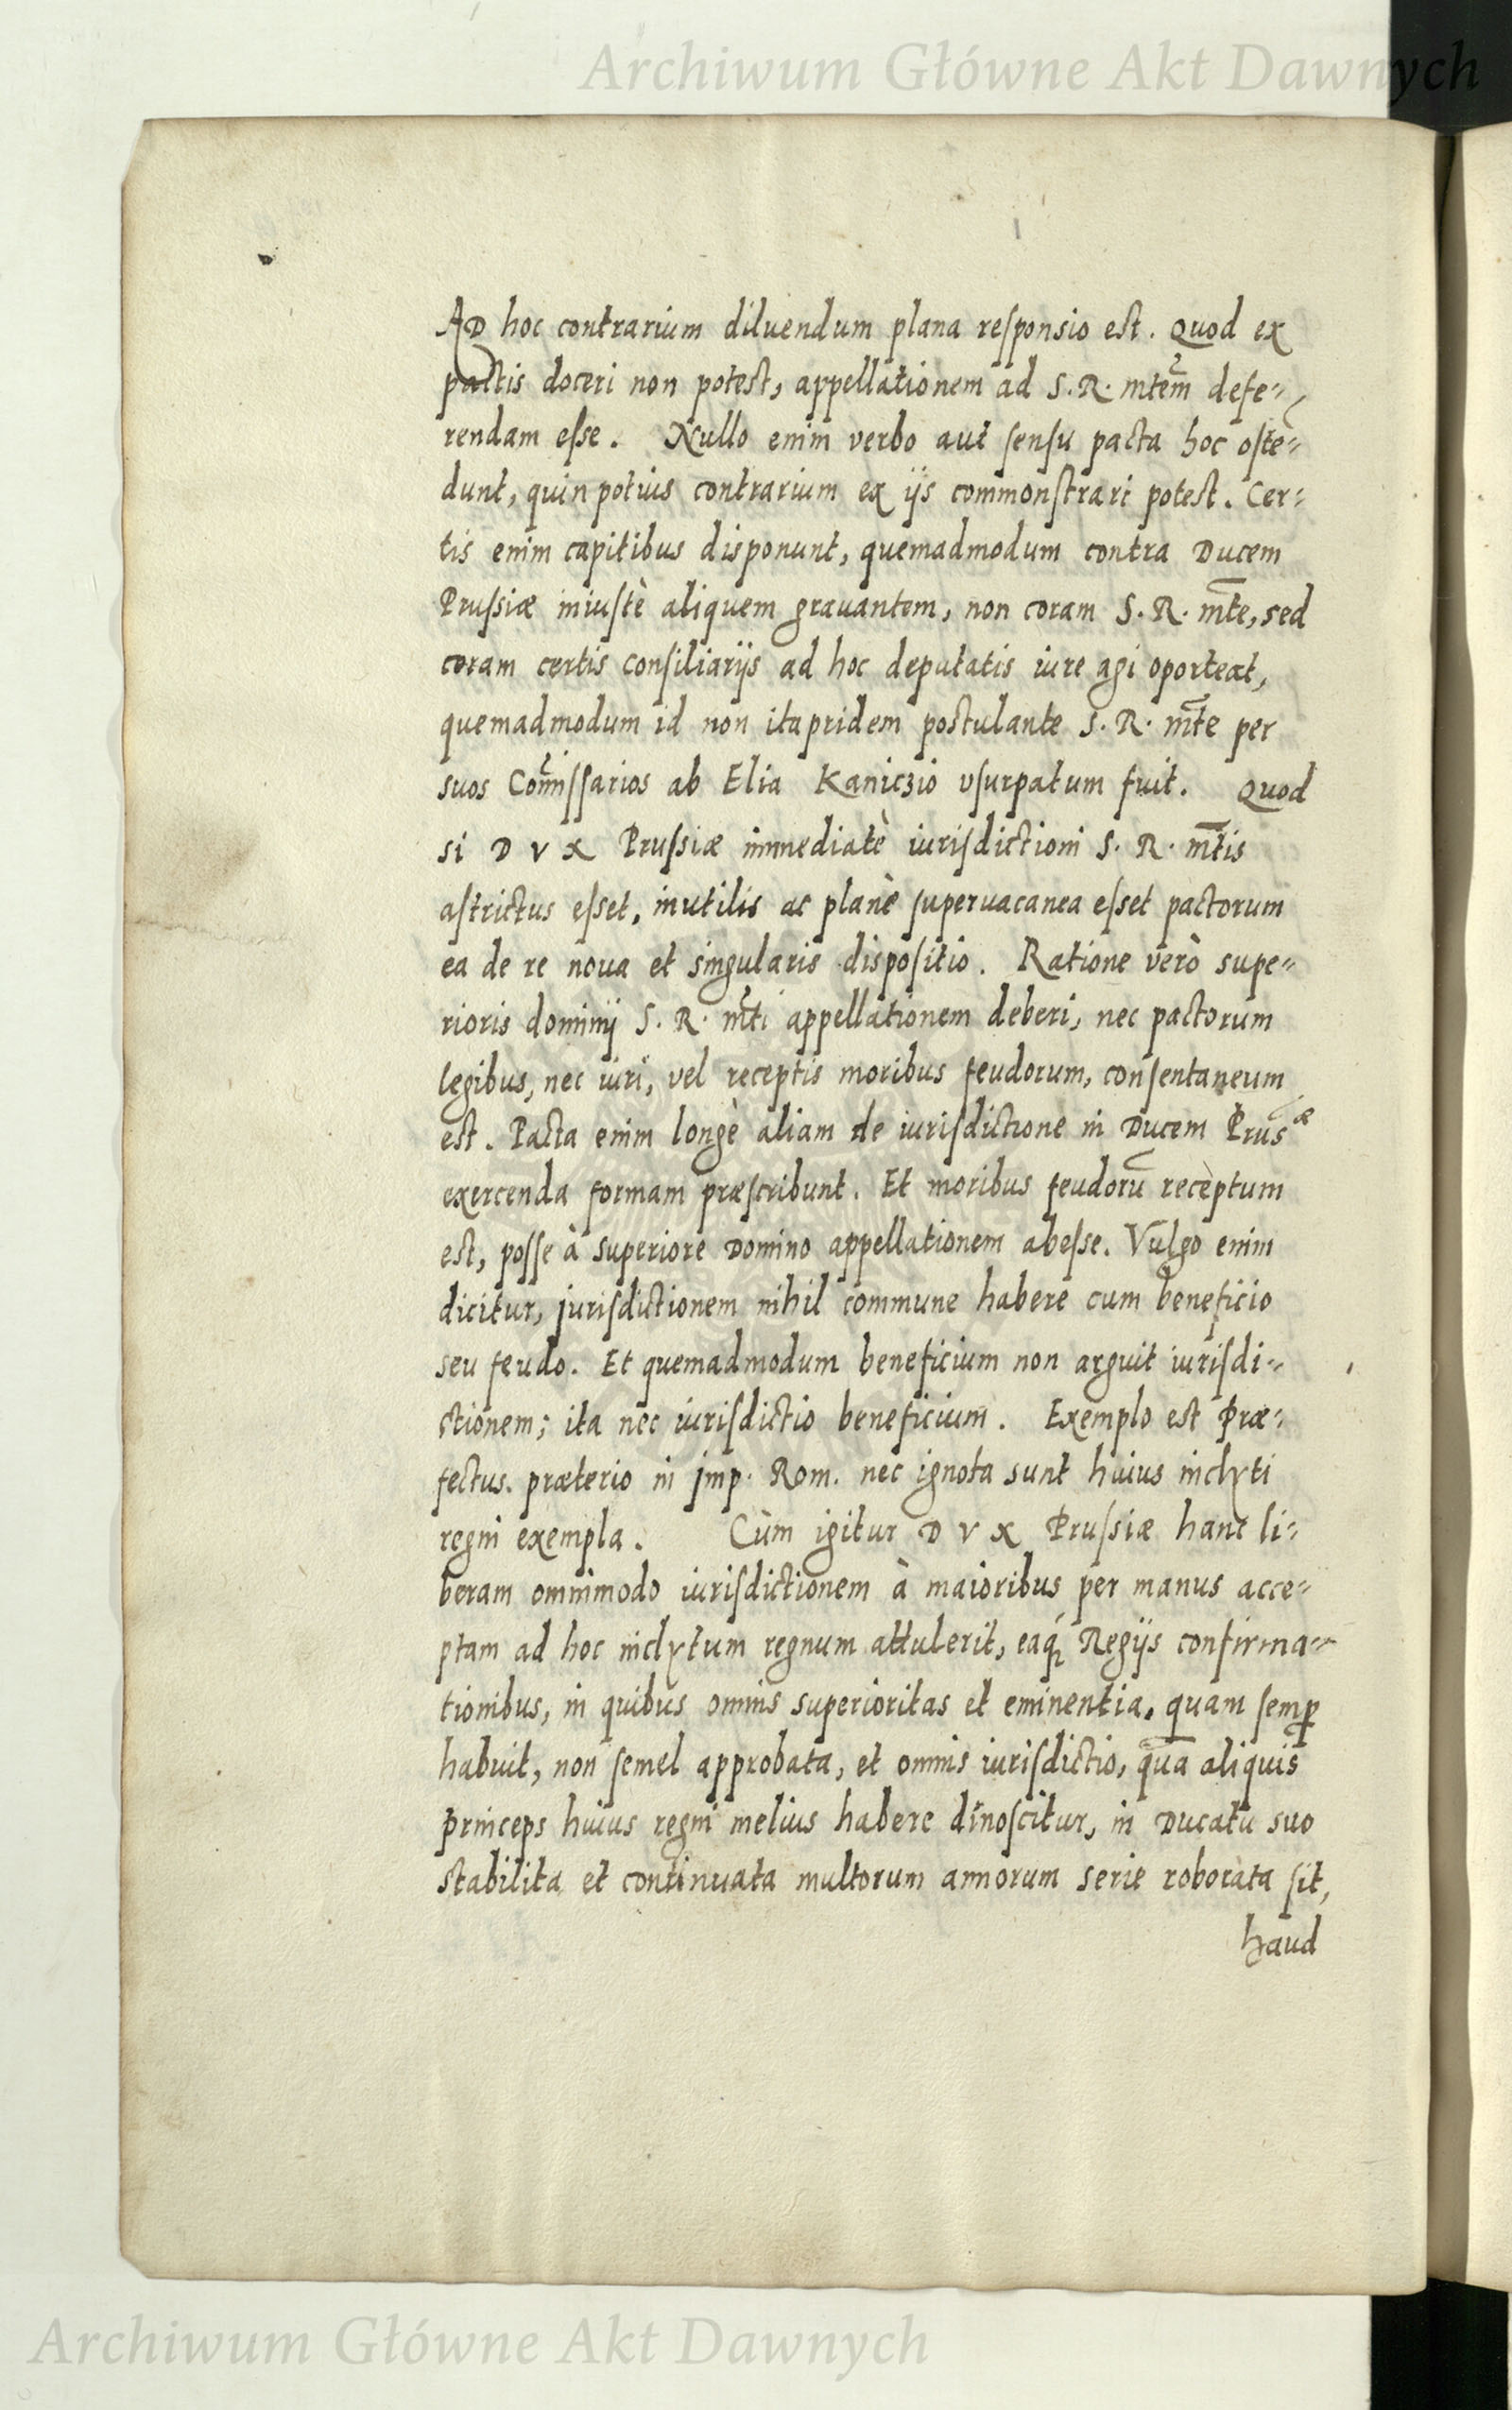 Archiwum Główne Akt Dawnych
AD hoc contrarium diluendum plana responsio est. Quod ex
pactis doceri non potest, appellationem ad S. R. mtem defe-
rendam esse. Nullo enim verbo aut sensu pacta hoc ostē-
dunt, quin potius contrarium ex ijs commonstrari potest. Cer-
tis enim capitibus disponunt, quemadmodum contra Ducem
Prussiæ iniustè aliquem grauantem, non coram S. R. mte, sed
coram certis consiliarijs ad hoc deputatis iure agi oporteat,
quemadmodum id non itapridem postulante S. R. mte per
suos Com̃issarios ab Elia Kaniczio vsurpatum fuit. Quod
si DVX Prussiæ immediatè iurisdictioni S. R. mtis
astrictus esset, inutilis ac planè superuacanea esset pactorum
ea de re noua et singularis dispositio. Ratione verò supe-
rioris dominij S. R. mti appellationem deberi, nec pactorum
legibus, nec iuri, vel receptis moribus feudorum, consentaneum
est. Pacta enim longè aliam de iurisdictione in Ducem Prusæ
exercenda formam præscribunt. Et moribus feudorū receptum
est, posse à superiore Domino appellationem abesse. Vulgo enim
dicitur, jurisdictionem nihil commune habere cum beneficio
seu feudo. Et quemadmodum beneficium non arguit iurisdi-
ctionem; ita nec iurisdictio beneficium. Exemplo est Præ-
fectus. præterio in jmp. Rom. nec ignota sunt huius inclyti
regni exempla. Cùm igitur DVX Prussiæ hanc li-
beram omnimodo iurisdictionem à maioribus per manus acce-
ptam ad hoc inclytum regnum attulerit, eaq́ Regijs confirma-
tionibus, in quibus omnis superioritas et eminentia, quam semp
habuit, non semel approbata, et omnis iurisdictio, quā aliquis
princeps huius regni melius habere dinoscitur, in Ducatu suo
stabilita et continuata multorum annorum serie roborata sit,
haud
Archiwum Główne Akt Dawnych